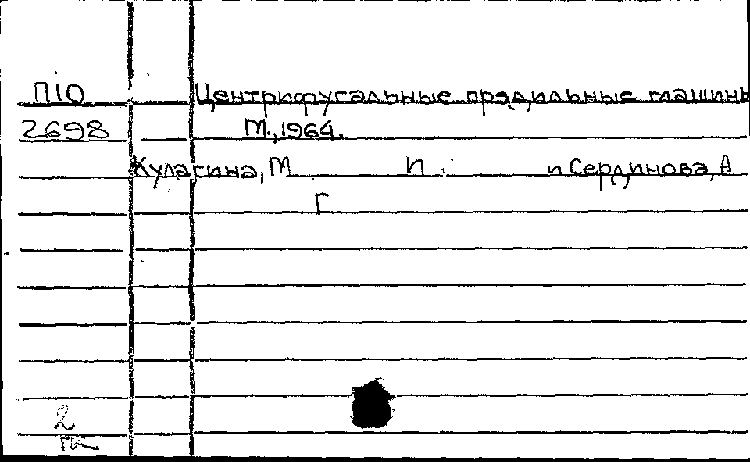 П10 Центрифугальные прядильные машины
2698 М., 1964.
Кулагина, М П. и Сердинова, А
Г
2